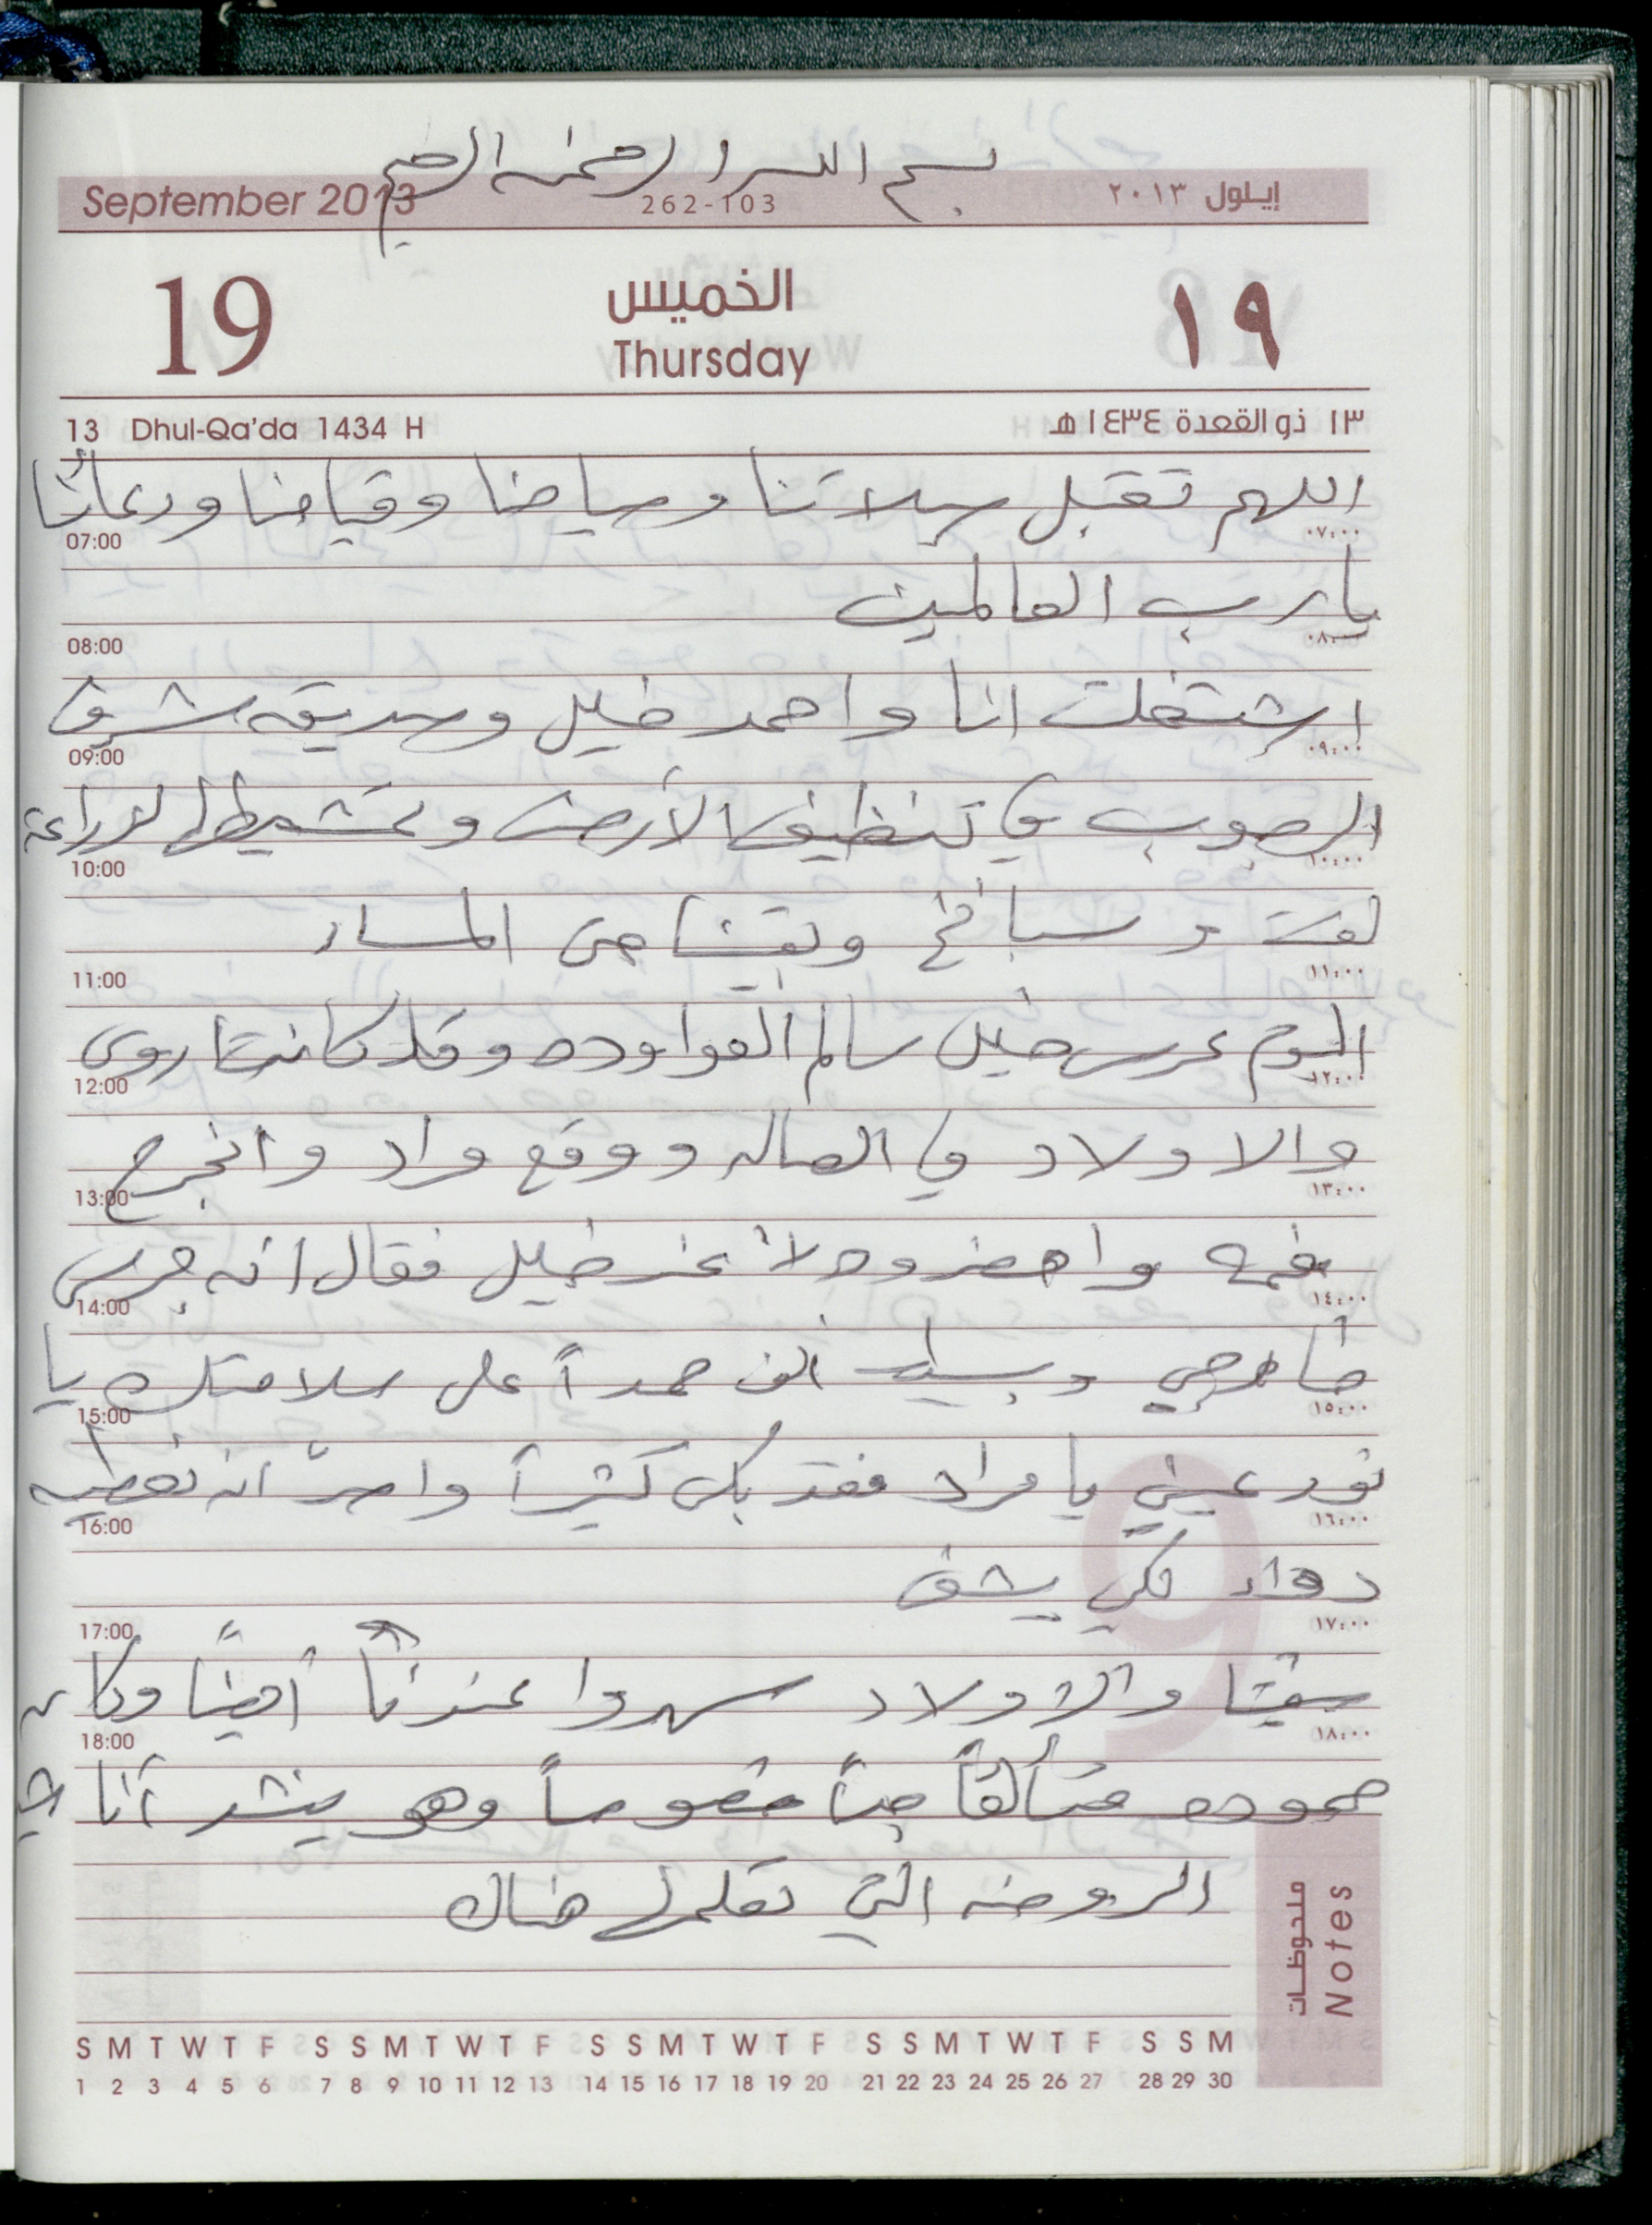 بسم الله الرحمن الرحيم
September 2013 262-103 إيلول ٢٠١٣
19 الخميس ١٩
Thursday
13 Dhul-Qa'da 1434 H ١٣ ذو القعدة ١٤٣٤ هـ
اللهم تقبل صلاتنا وصيامنا وقيامنا ودعائنا
07:00 ٠٧:٠٠
يارب العالمين
08:00 ٠٨:٠٠
اشتغلت انا واحمد خليل وصديقه شرق
09:00 ٠٩:٠٠
الصوب في تنظيف الأرض وتمشيطها لزراعة
10:00 ١٠:٠٠
لفت و سبانخ وبقينا حتى المساء
11:00 ١١:٠٠
اليوم عرس خليل سالم العواوده وقد كانت اروى
12:00 ١٢:٠٠
والاولاد في الصاله ووقع مراد وانجرح
13:00 ١٣:٠٠
بفمه واحضروه لأ عند خليل فقال انه جرح
14:00 ١٤:٠٠
خارجي وبسيط الف حمداً على سلامتك يا
15:00 ١٥:٠٠
نور عيني يا مراد فقد بكى كثيراً واصرّ ان نعطيه
16:00 ١٦:٠٠
دواء لكي يشفى
17:00 ١٧:٠٠
سقيتا والاولاد سهروا عندنا أيضاً وكان
18:00 ١٨:٠٠
حموده متألقاً جداً خصوصاً وهو ينشد أناشيد
الروضه التي تعلمها هناك
ملحوظات
Notes
S M T W T F S S M T W T F S S M T W T F S S M T W T F S S M
1 2 3 4 5 6 7 8 9 10 11 12 13 14 15 16 17 18 19 20 21 22 23 24 25 26 27 28 29 30